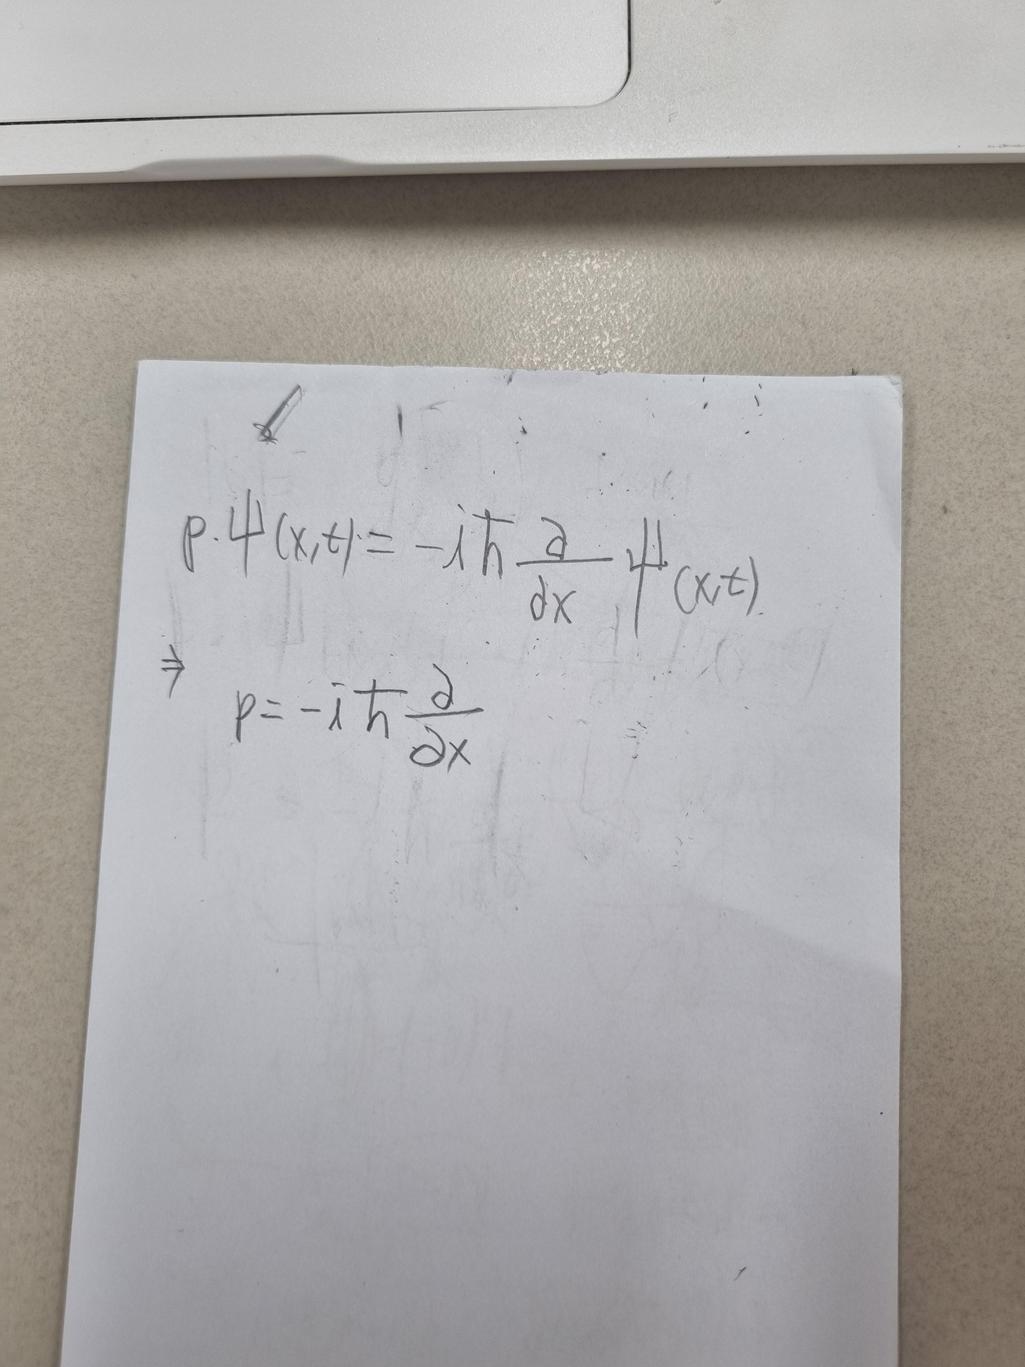 p·Ψ(x,t) = -iħ ∂/∂x Ψ(x,t)
⇒ p = -iħ ∂/∂x